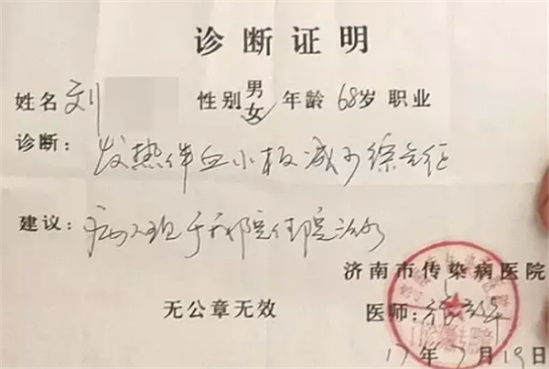 诊断证明
姓名 刘 性别 男 女 年龄 68岁 职业
诊断: 发热伴血小板减少综合征
建议: 病人现于我院住院治疗
济南市传染病医院
无公章无效 医师:
17年7月19日